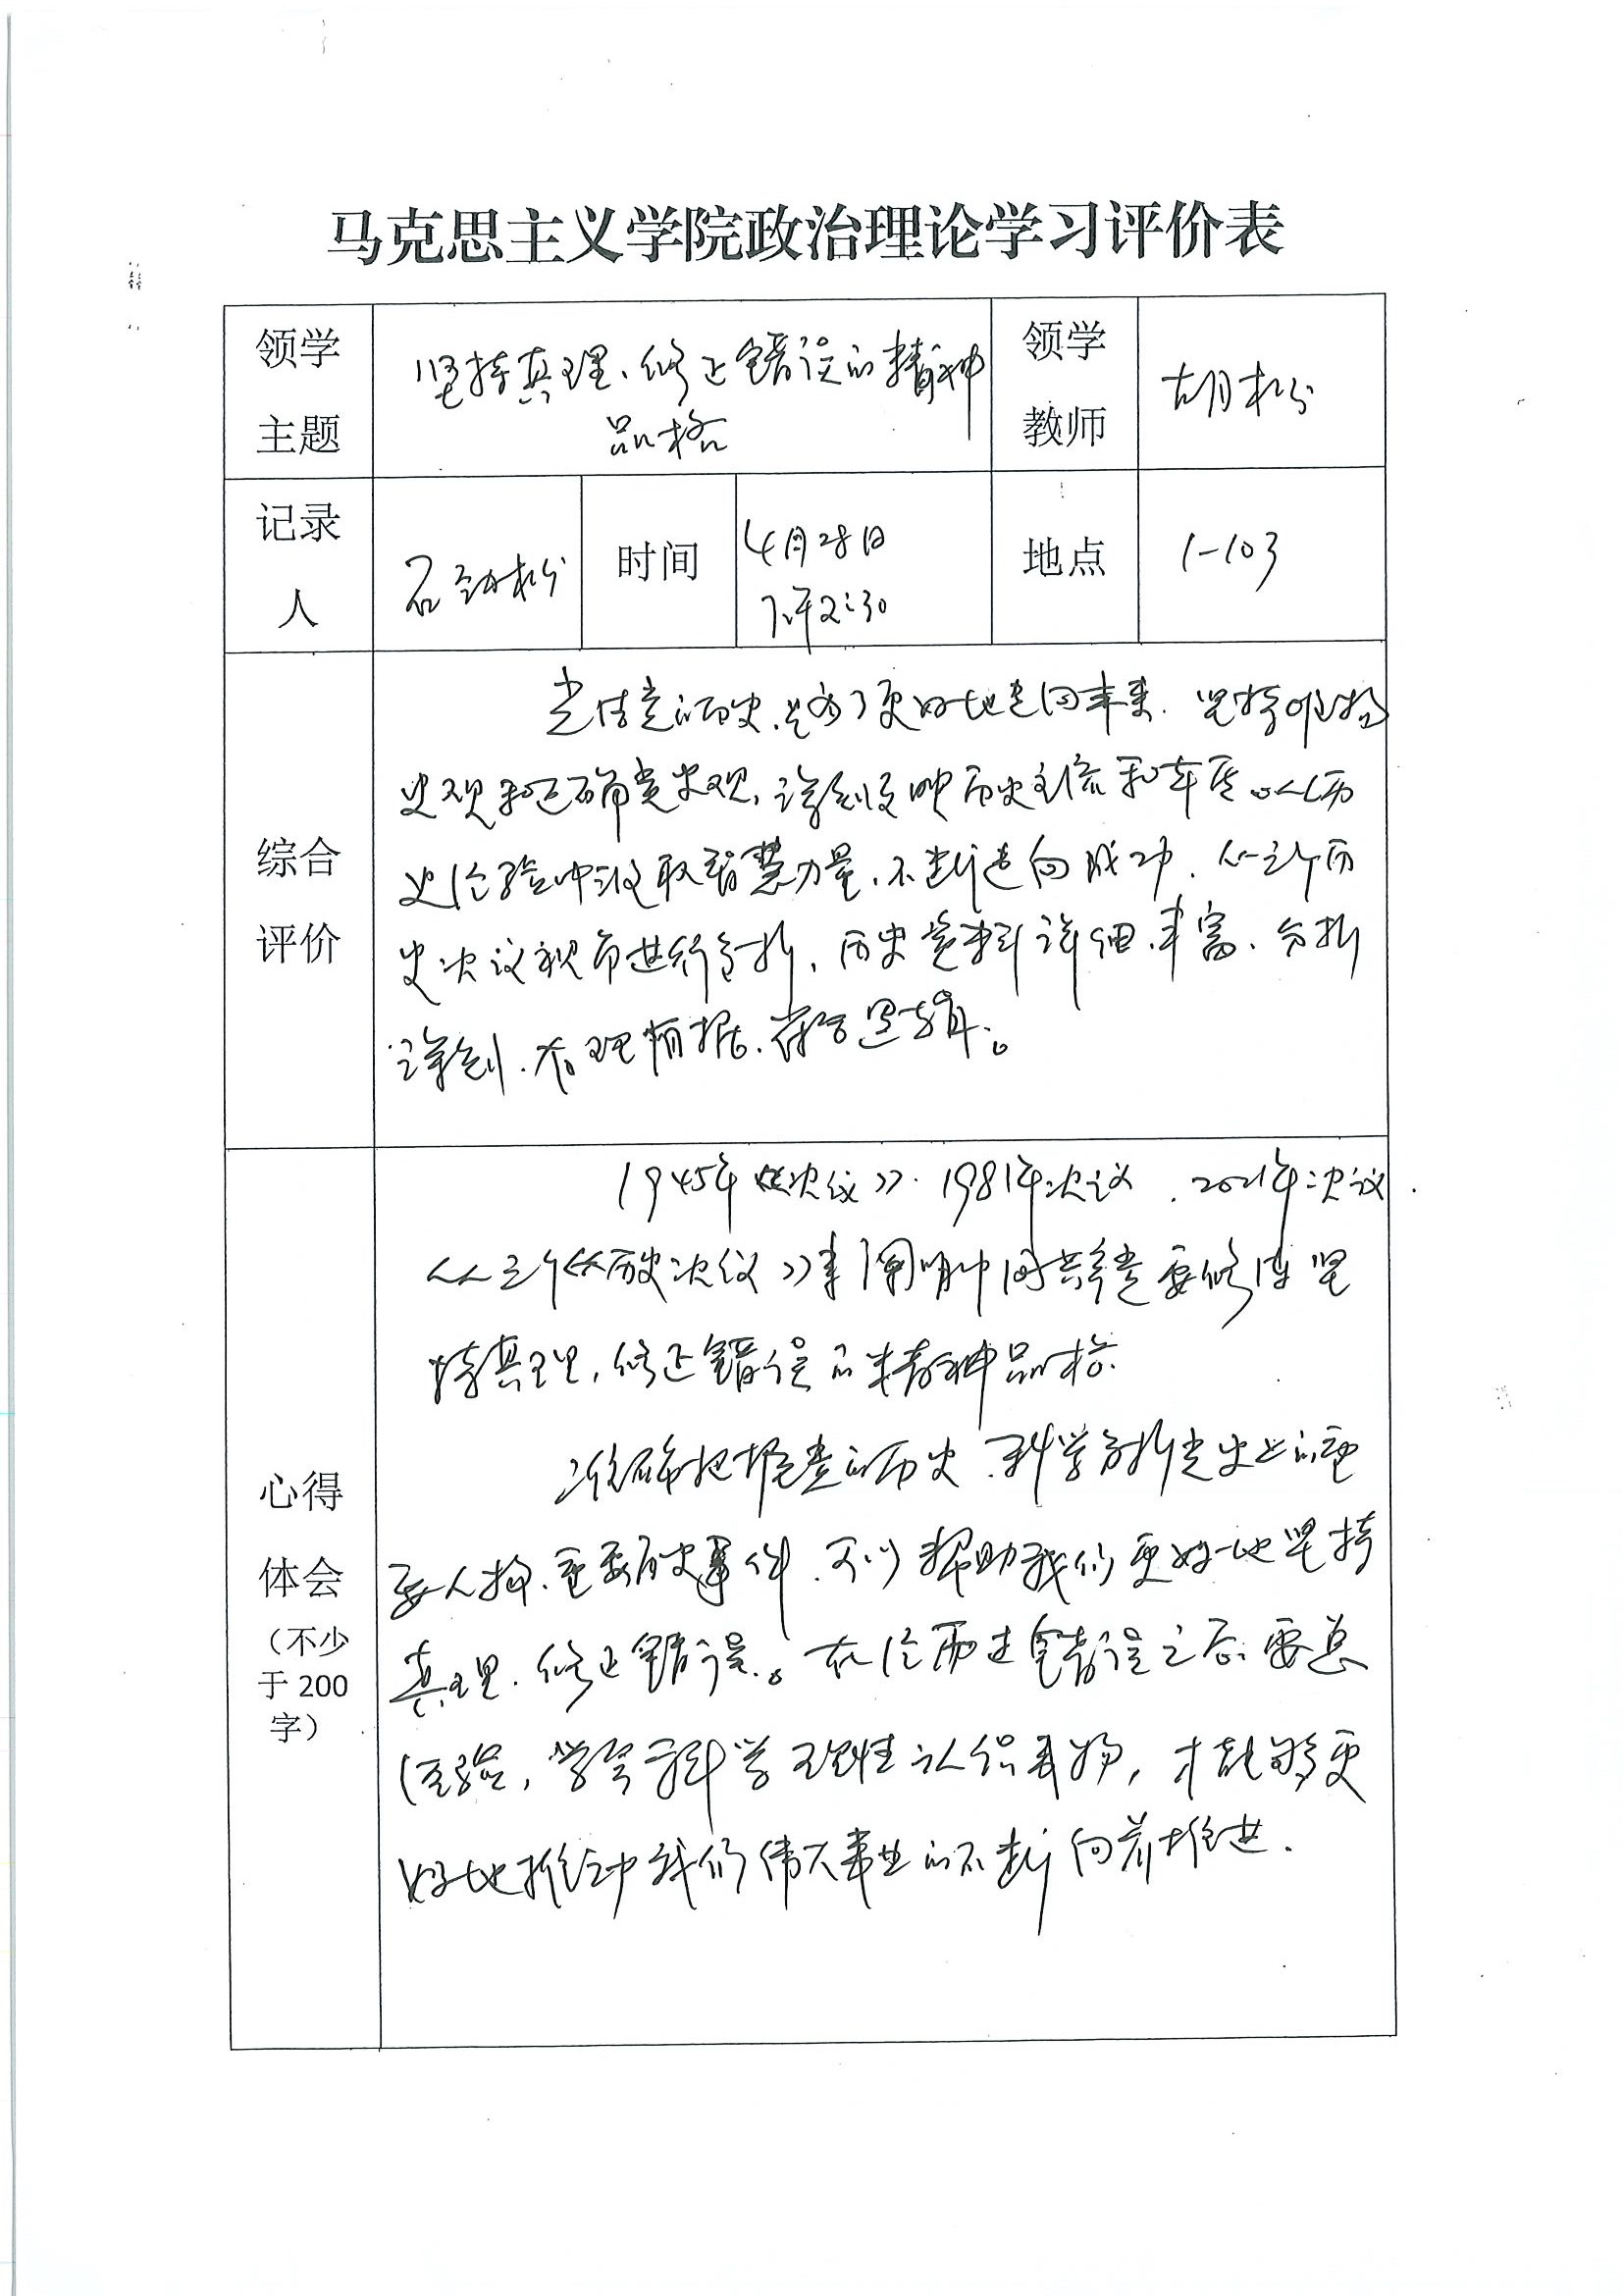 马克思主义学院政治理论学习评价表
领学
主题
坚持真理、修正错误的精神
品格
领学
教师
胡松
记录
人
石劲松
时间
4月28日
下午2:30
地点
1-103
综合
评价
党的历史、是为了更好地走向未来. 坚持唯物
史观和正确党史观, 深刻反映历史主流和本质。从历
史经验中汲取智慧力量、不断走向成功. 从三个历
史决议视角进行分析, 历史资料详细、丰富、分析
深刻、有理有据、符合逻辑。
心得
体会
（不少
于 200
字）
1945年《决议》、1981年决议、2021年决议.
从三个《历史决议》来阐明中国共产党要修炼坚
持真理, 修正错误的精神品格.
准确把握党的历史、科学分析党史上的重
要人物、重要历史事件、可以帮助我们更好地坚持
真理、修正错误。在经历过错误之后要总
结, 学会科学理性认识事物, 才能够更
好地推动我们伟大事业的不断向前推进.